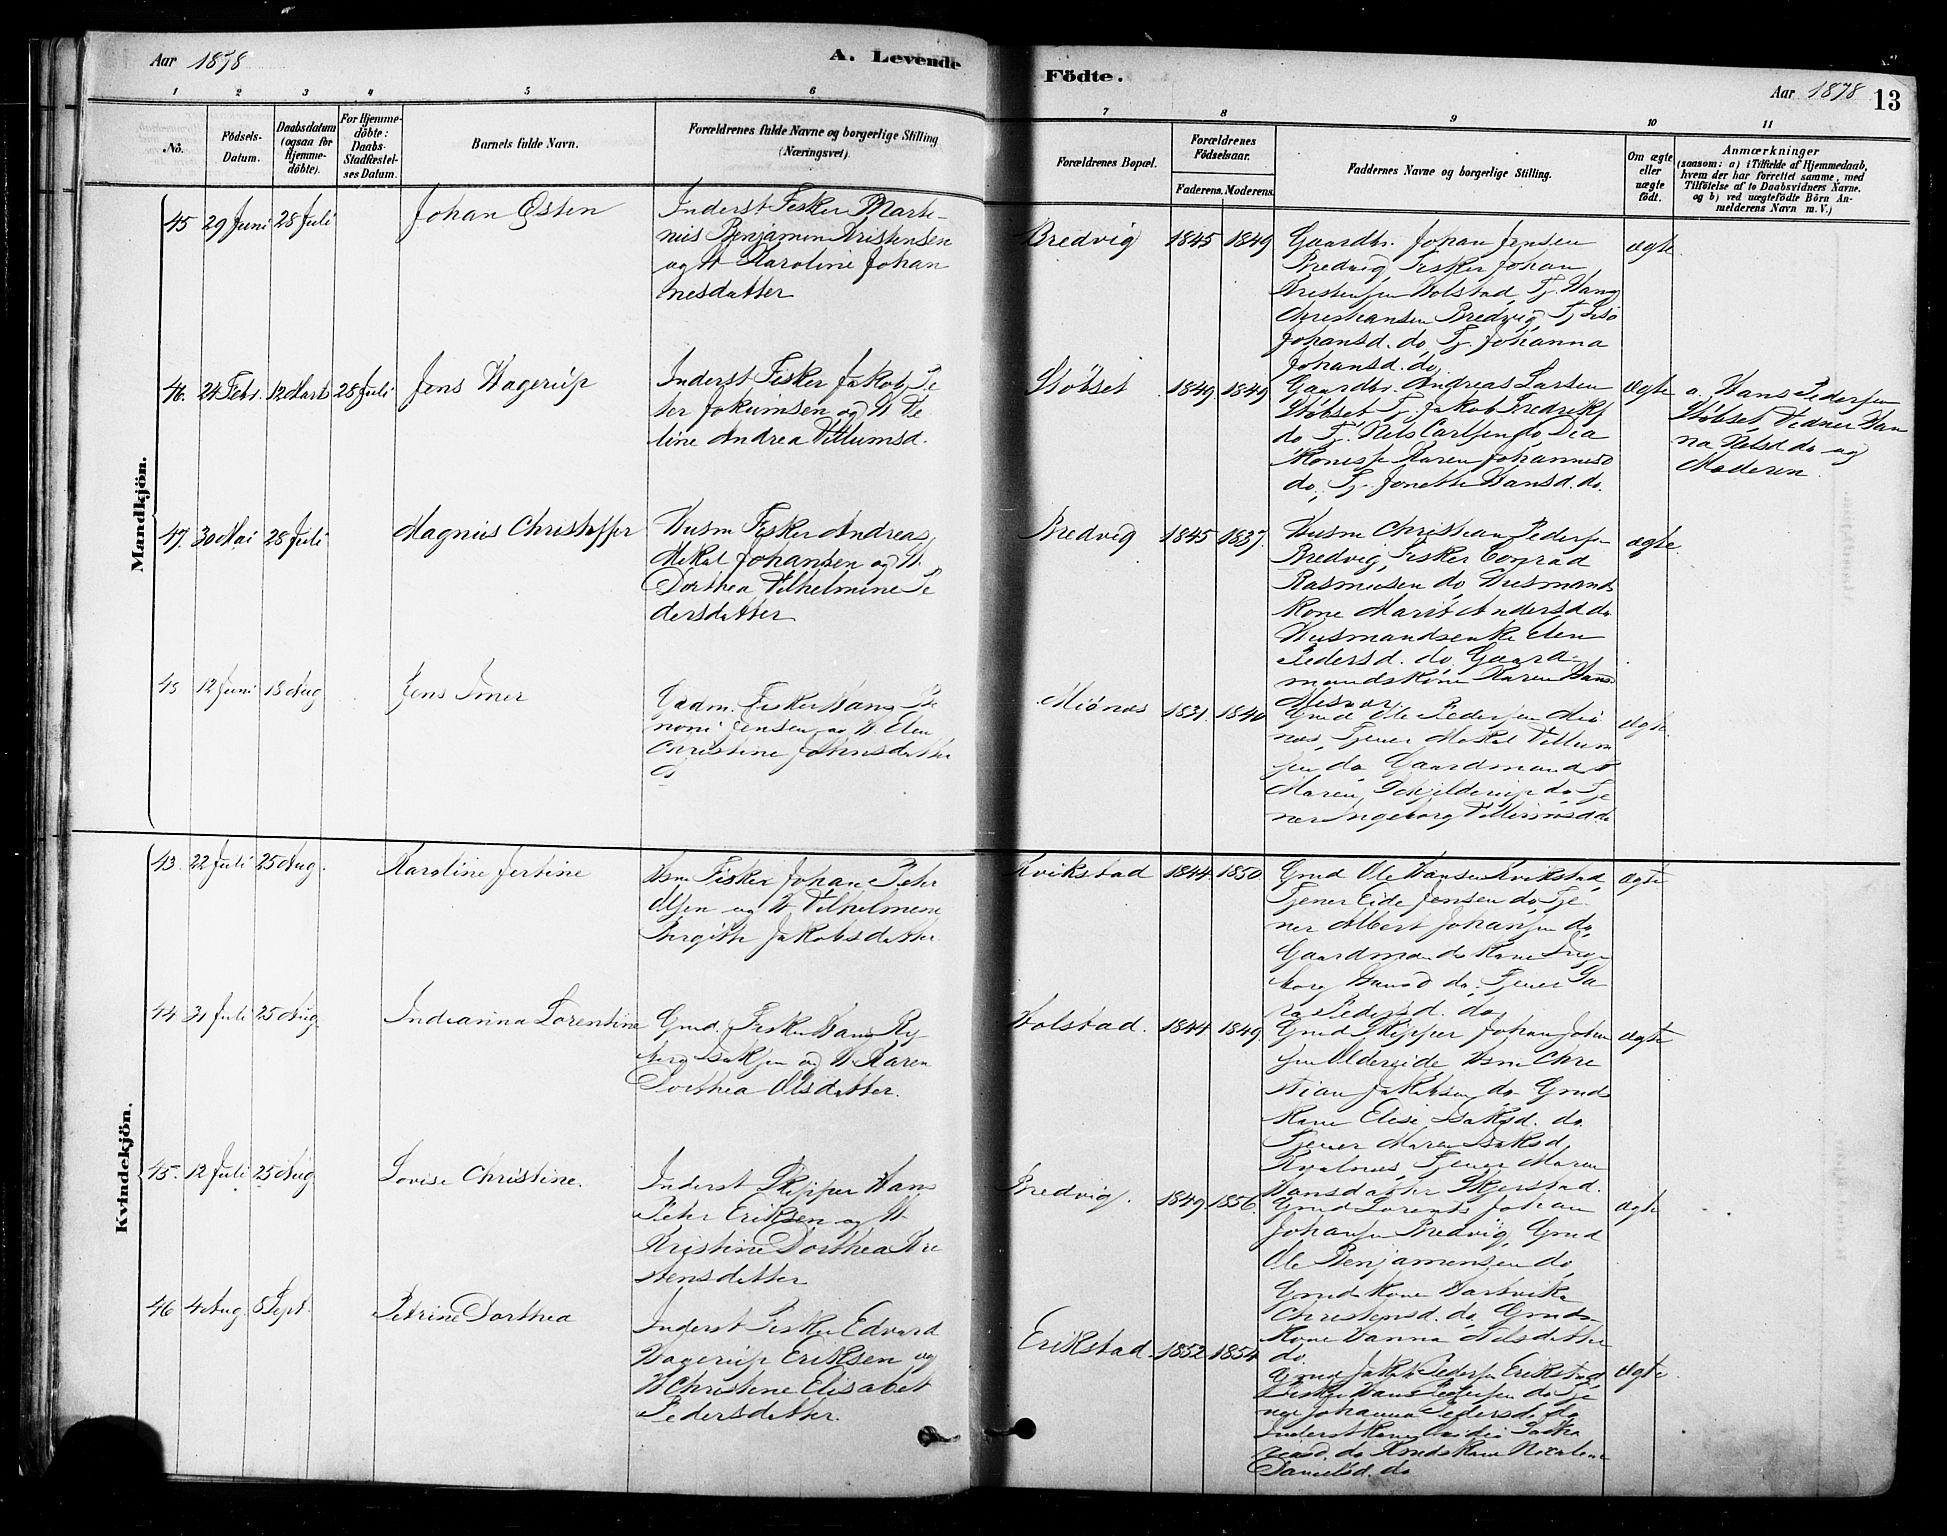 Aar 1878
A. Levende
Födte.
Aar 1878
13
1 2 3 4 5 6 7 8 9 10 11
No.
Födsels-
Datum.
Daabsdatum
(ogsaa for
Hjemme-
döbte).
For Hjemme-
döbte:
Daabs-
Stadfæstel-
ses Datum.
Barnets fulde Navn.
Forældrenes fulde Navne og borgerlige Stilling
(Næringsvei).
Forældrenes Bopæl.
Forældrenes
Födselsaar.
Faderens. Moderens.
Faddernes Navne og borgerlige Stilling.
Om ægte
eller
uægte
födt.
Anmærkninger
(saasom: a) i Tilfælde af Hjemmedaab,
hvem der har forrettet samme, med
Tilföielse af to Daabsvidners Navne.
og b) ved uægtefödte Börn An-
melderens Navn m. V.)
Mandkjön.
45 29 Juni 28 Juli
Johan Østen
Inderst Fisker Marte-
nius Benjamin Kristensen
og H Karoline Johan
nesdatter
Bredvig 1845 1849
Gaardbr. Johan Jensen
Bredvig, Fisker Johan
Kristensen Holstad, Tj. Hans
Christiansen Bredvig, Tj
Johansd. do, Tj. Johanna
Johansd. do.
ægte
46. 24 Febr. 12 Marts 28 Juli
Jens Hagerup
Inderst Fisker Jakob Pe
ter Jokumsen og H
line Andrea Villumsd.
Støbset 1849 1849
Gaardbr. Andreas Larsen
Støbset Tj. Jakob Fredriks
do Tj. Nels Carlsen do, Dia
koniss Karen Johannesd
do, Tj. Jonette Hansd. do.
ægte
a. Hans Pedersen
Støbset, Vidner Han
na Nelsd do og
Moderen
47. 30 Mai 28 Juli
Magnus Christoffer
Husm Fisker Andreas
Mekal Johansen og H.
Dorthea Vilhelmine Pe
dersdatter
Bredvig 1845 1837.
Husm Christian Peders
Bredvig, Fisker Conrad
Rasmussen do, Husmands
kone Marit Andersd do
Husmandsenke Elen
Pedersd. do, Gaard-
mandskone Karen Hans
Misvær
ægte.
48 12 Juni 18 Aug
Jens Imer
Gaardm. Fisker Hans Be
noni Jensen og H Elen
Christine Johnsdatter
Miønæs 1831 1840
Grnd Ole Pedersen Miø
næs, Tjener Mekal Villum
sen do Gaardmands
Maren Schjelderup do Tje
ner Ingeborg Villumsd do
ægte
Kvindekjön.
43. 22 Juli 25 Aug.
Karoline Jertine
Hsm Fisker Johan Peter
Olsen og H Vilhelmene
Bergitte Jakobsdatter.
Kvikstad 1844 1850
Grnd Ole Hansen Kvikstad,
Tjener Eide Jensen do Tje-
ner Albert Johansen do,
Gaardmands Kone Inge
borg Hansd do, Tjener
Pedersd. do,
ægte
44. 31 Juli 25 Aug.
Indianna Lorentine
Grnd. Fisker Hans Ry
berg Isaksen og H. Karen
Dorthea Olsdatter.
Holstad. 1844 1849.
Grnd Skipper Johan Johan
sen Oldereide Hsm Chre
stian Jakobsen do Grnd
Kone Elise Isaksd. do
Tjener Maren Isaksd,
Tjener Maren
Hansdatter Skjerstad.
ægte
45. 12 Juli 25 Aug
Lovise Christine.
Inderst Skipper Hans
Peter Eriksen og H
Kristine Dorthea Kri
stensdatter
Bredvig. 1849. 1856.
Grnd Lorents Johan
Johansen Bredvig, Grnd
Ole Benjamensen do,
Grnd Kone Hartvika
Christensd. do, Grnd-
Kone Hanna Nelsdatter
do.
ægte
46 4 Aug. 8 Sept.
Petrine Dorthea
Inderst Fisker Edvard
Hagerup Eriksen og
H Christine Elisabet
Pedersdatter.
Erikstad. 1852. 1854
Grnd Jakob Pedersen Erikstad,
Fisker Hans Pedersen do Tje
ner Johanna Pedersd. do
Inderst Kone
do Grnds Kone Nicoline
Danielsd. do
ægte